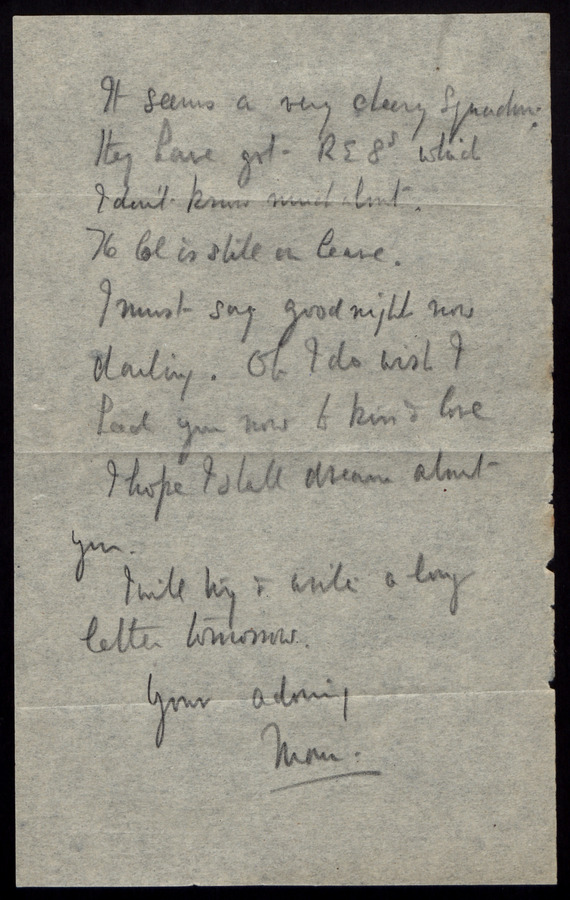 It seems a very cheery Squadron.
They have got - R E 8s which
I don't know much about.
The Col is still on leave.
I must say goodnight now
darling. Oh I do wish I
had you now to kiss & love
I hope I shall dream about
you.
I will try & write a long
letter tomorrow.
Your adoring